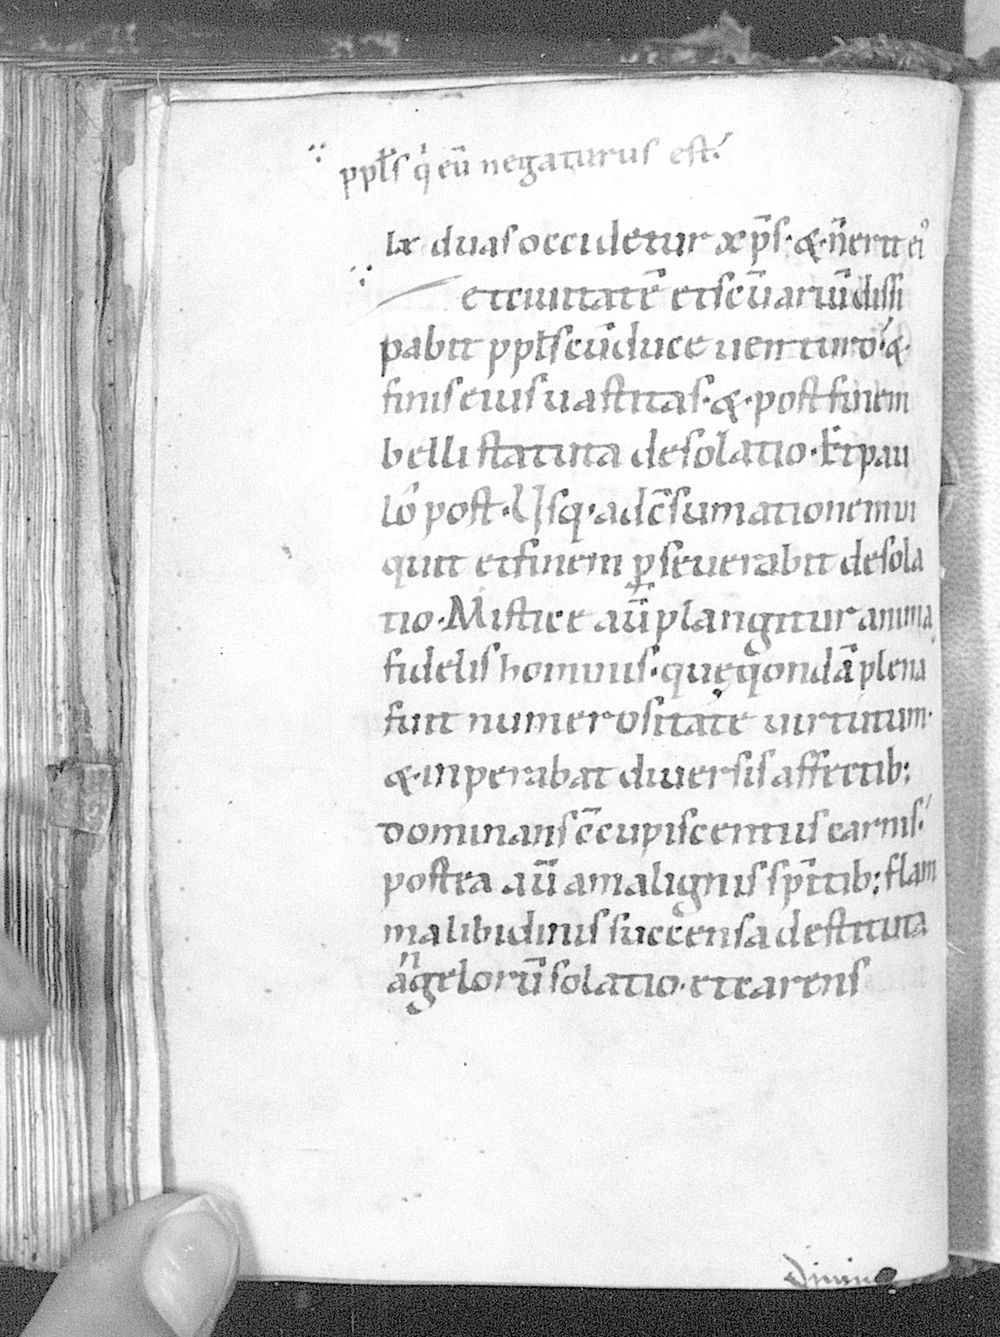 ppl̅s q̇ eū negaturus est.
ix duas occidetur xp̅s. &. n̄ erit ei᷒
et ciuitatē et sc̄uariū dissi
pabit ppl̅s cū duce uenturo. &.
finis eius uastitas. &. post finem
belli statuta desolatio. Et pau
lo post. Usq. ad c̄sumationem ui
quit et finem ꝑseuerabit desola
tio. Mistice aū plangitur anima
fidelis hominis. quę qondā plena
fuit numerositate uirtutum.
&. inperabat diuersis affectib;
dominans c̄cupiscentiis carnis.
postea aū a malignis sp̄itib; flam
ma libidinis succensa destituta
angelorū solatio. et carens
diuino